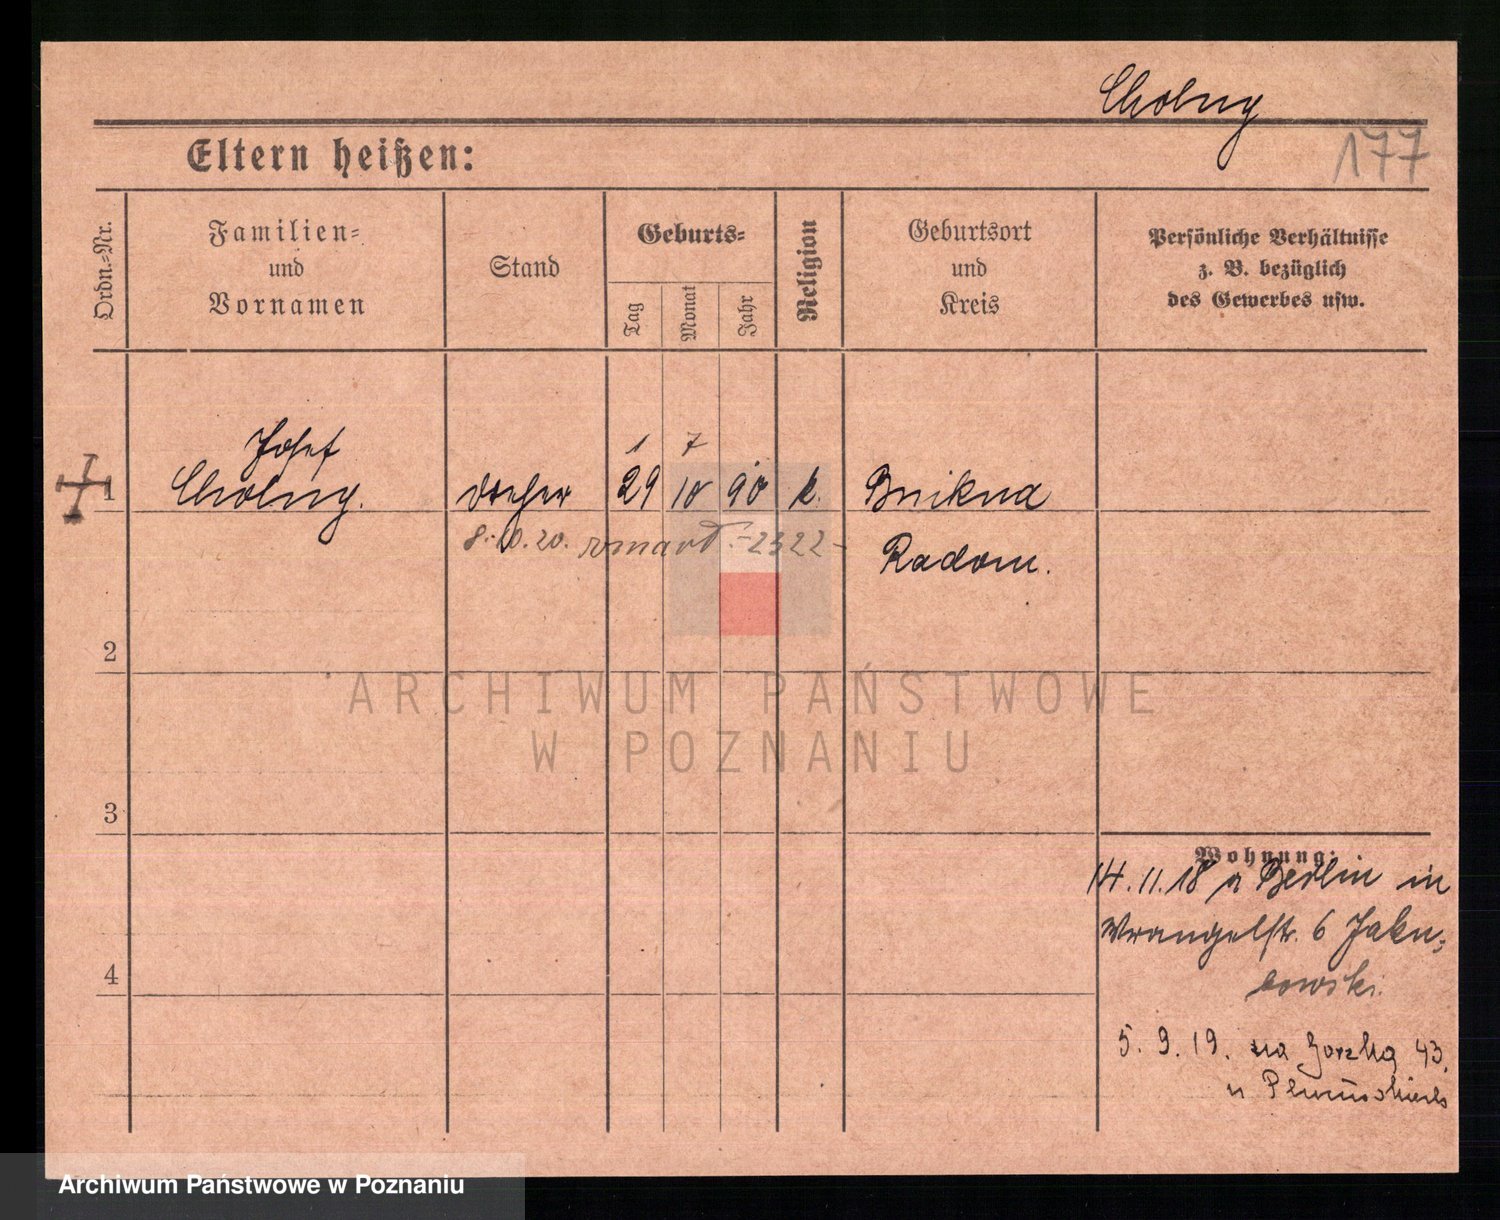 Cholny
177
Eltern heißen:
Ordn.-Nr.
Familien-
und
Vornamen
Stand
Geburts-
Tag
Monat
Jahr
Religion
Geburtsort
und
Kreis
Persönliche Verhältnisse
z. B. bezüglich
des Gewerbes usw.
Josef 1 7
1 Cholny. Dreher 29 10 90 k.
8.10.20. zmarł -2322-
Radom.
2
3
4
ARCHIWUM PAŃSTWOWE
W POZNANIU
Wohnung:
14.11.18 a Berlin in
Wrangelstr. 6 Jaku-
bowski.
5.9.19. na 43.
u
Archiwum Państwowe w Poznaniu